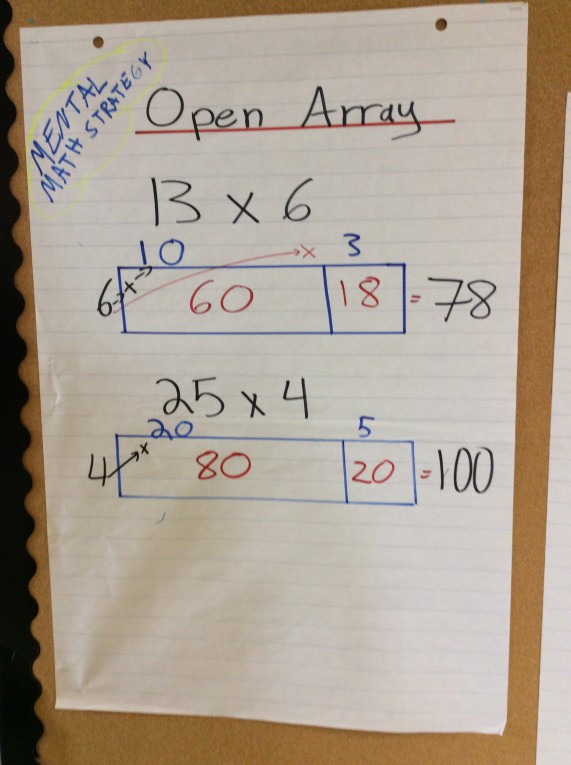 MENTAL
MATH STRATEGY
Open Array
13 x 6
10 3
6 x x
60 18 = 78
25 x 4
20 5
4 x
80 20 = 100